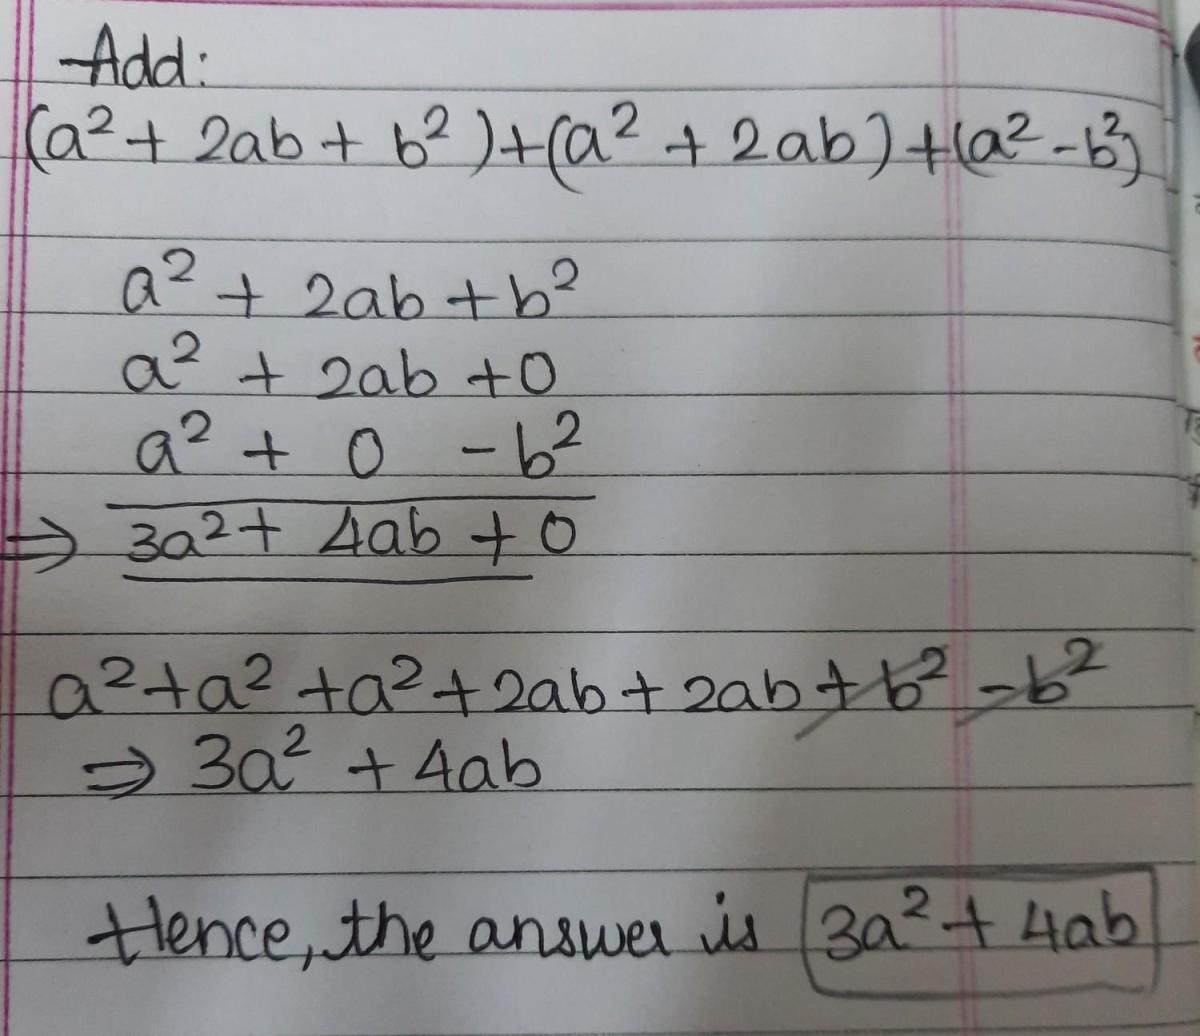 Add:
(a² + 2ab + b²)+(a² + 2ab)+(a² -b²)
a² + 2ab + b²
a² + 2ab +0
a² + 0 -b²
⇒ 3a² + 4ab + 0
a²+a² +a²+2ab+2ab+b² -b²
⇒ 3a² + 4ab
Hence, the answer is 3a² + 4ab